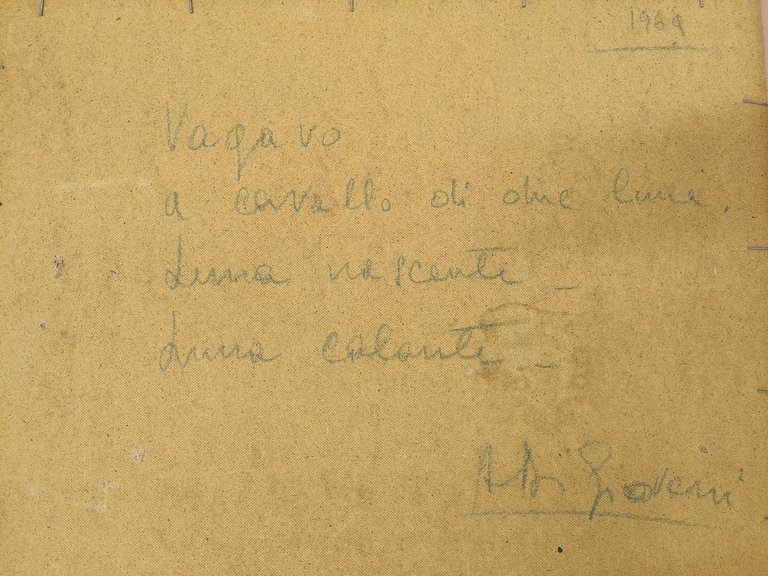 1969
Vagavo
a cavallo di due lune.
Luna nascente –
Luna calante –
A Di Giovanni